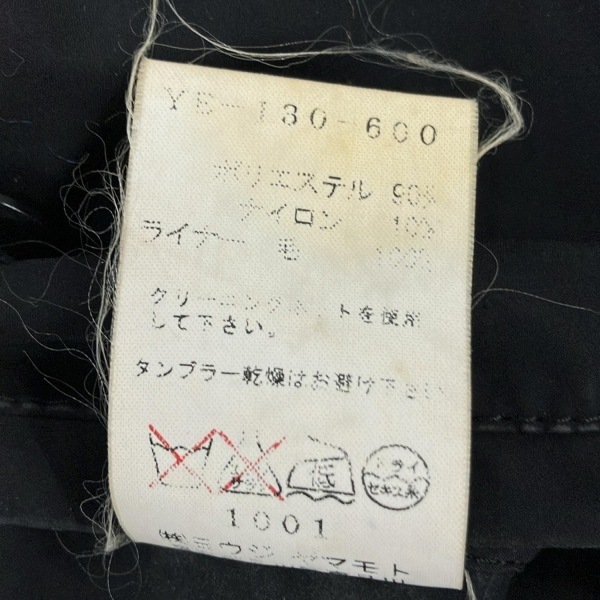 YE-130-600
ポリエステル 90%
ナイロン 10%
ライナー 毛 100%
クリーニングネットを使用
して下さい。
タンブラー乾燥はお避け下さい
低 ドライ
セキユ系
1001
ヨウジ ヤマモト